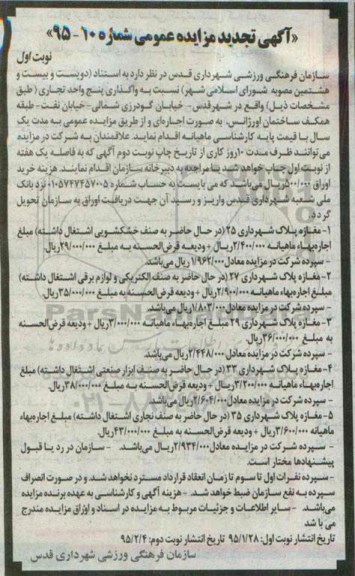 «آگهی تجدید مزایده عمومی شماره ۱۰-۹۵»
نوبت اول
سازمان فرهنگی ورزشی شهرداری قدس در نظر دارد به استناد (دویست و بیست و
هشتمین مصوبه شورای اسلامی شهر) نسبت به واگذاری پنج واحد تجاری (طبق
مشخصات ذیل) واقع در شهر قدس- خیابان گودرزی شمالی- خیابان نفت- طبقه
همکف ساختمان اورژانس، به صورت اجاره‌ای و از طریق مزایده عمومی به مدت یک
سال با قیمت پایه کارشناسی ماهیانه اقدام نماید. علاقمندان به شرکت در مزایده
می‌توانند ظرف مدت ۱۰ روز کاری از تاریخ چاپ نوبت دوم آگهی که به فاصله یک هفته
از نوبت اول چاپ خواهد شد، با مراجعه به دبیرخانه سازمان اقدام نمایند. هزینه خرید
اوراق ۵۰۰/۰۰۰ ریال می‌باشد که می بایست به حساب شماره ۰۱۰۵۷۴۷۴۵۷۰۰۵ نزد بانک
ملی شعبه شهرداری قدس واریز و رسید آن جهت دریافت اوراق به سازمان تحویل
گردد.
۱- مغازه پلاک شهرداری ۲۵ (در حال حاضر به صنف خشکشویی اشتغال داشته) مبلغ
اجاره‌بهاء ماهیانه ۲/۴۰۰/۰۰۰ ریال + ودیعه قرض‌الحسنه به مبلغ ۲۹/۰۰۰/۰۰۰ ریال.
- سپرده شرکت در مزایده معادل ۱/۹۶۲/۰۰۰ ریال می‌باشد.
۲- مغازه پلاک شهرداری ۲۷ (در حال حاضر به صنف الکتریکی و لوازم برقی اشتغال داشته)
مبلغ اجاره‌بهاء ماهیانه ۲/۹۰۰/۰۰۰ ریال + ودیعه قرض‌الحسنه به مبلغ ۳۵/۰۰۰/۰۰۰ ریال.
- سپرده شرکت در مزایده معادل ۱/۸۰۳/۰۰۰ ریال می‌باشد.
۳- مغازه پلاک شهرداری ۲۹ مبلغ اجاره‌بهاء ماهیانه ۳/۰۰۰/۰۰۰ ریال + ودیعه قرض‌الحسنه
به مبلغ ۳۶/۰۰۰/۰۰۰ ریال.
- سپرده شرکت در مزایده معادل ۲/۴۴۸/۰۰۰ ریال می‌باشد.
۴- مغازه پلاک شهرداری ۳۳ (در حال حاضر به صنف ابزار صنعتی اشتغال داشته) مبلغ
اجاره‌بهاء ماهیانه ۳/۲۰۰/۰۰۰ ریال + ودیعه قرض‌الحسنه به مبلغ ۳۸/۰۰۰/۰۰۰ ریال.
- سپرده شرکت در مزایده معادل ۲/۶۰۴/۰۰۰ ریال می‌باشد.
۵- مغازه پلاک شهرداری ۳۵ (در حال حاضر به صنف نجاری اشتغال داشته) مبلغ اجاره‌بهاء
ماهیانه ۳/۶۰۰/۰۰۰ ریال + ودیعه قرض‌الحسنه به مبلغ ۴۳/۰۰۰/۰۰۰ ریال.
- سپرده شرکت در مزایده معادل ۲/۹۳۴/۰۰۰ ریال می‌باشد. - سازمان در رد یا قبول
پیشنهادها مختار است.
- سپرده نفرات اول تا سوم تا زمان انعقاد قرارداد مسترد نخواهد شد و در صورت انصراف
سپرده به نفع سازمان ضبط خواهد شد. - هزینه آگهی و کارشناسی به عهده برنده مزایده
می‌باشد. - سایر اطلاعات و جزئیات مربوط به مزایده در اسناد و اوراق مزایده مندرج
می باشد
تاریخ انتشار نوبت اول: ۹۵/۱/۲۸ تاریخ انتشار نوبت دوم: ۹۵/۲/۴
سازمان فرهنگی ورزشی شهرداری قدس